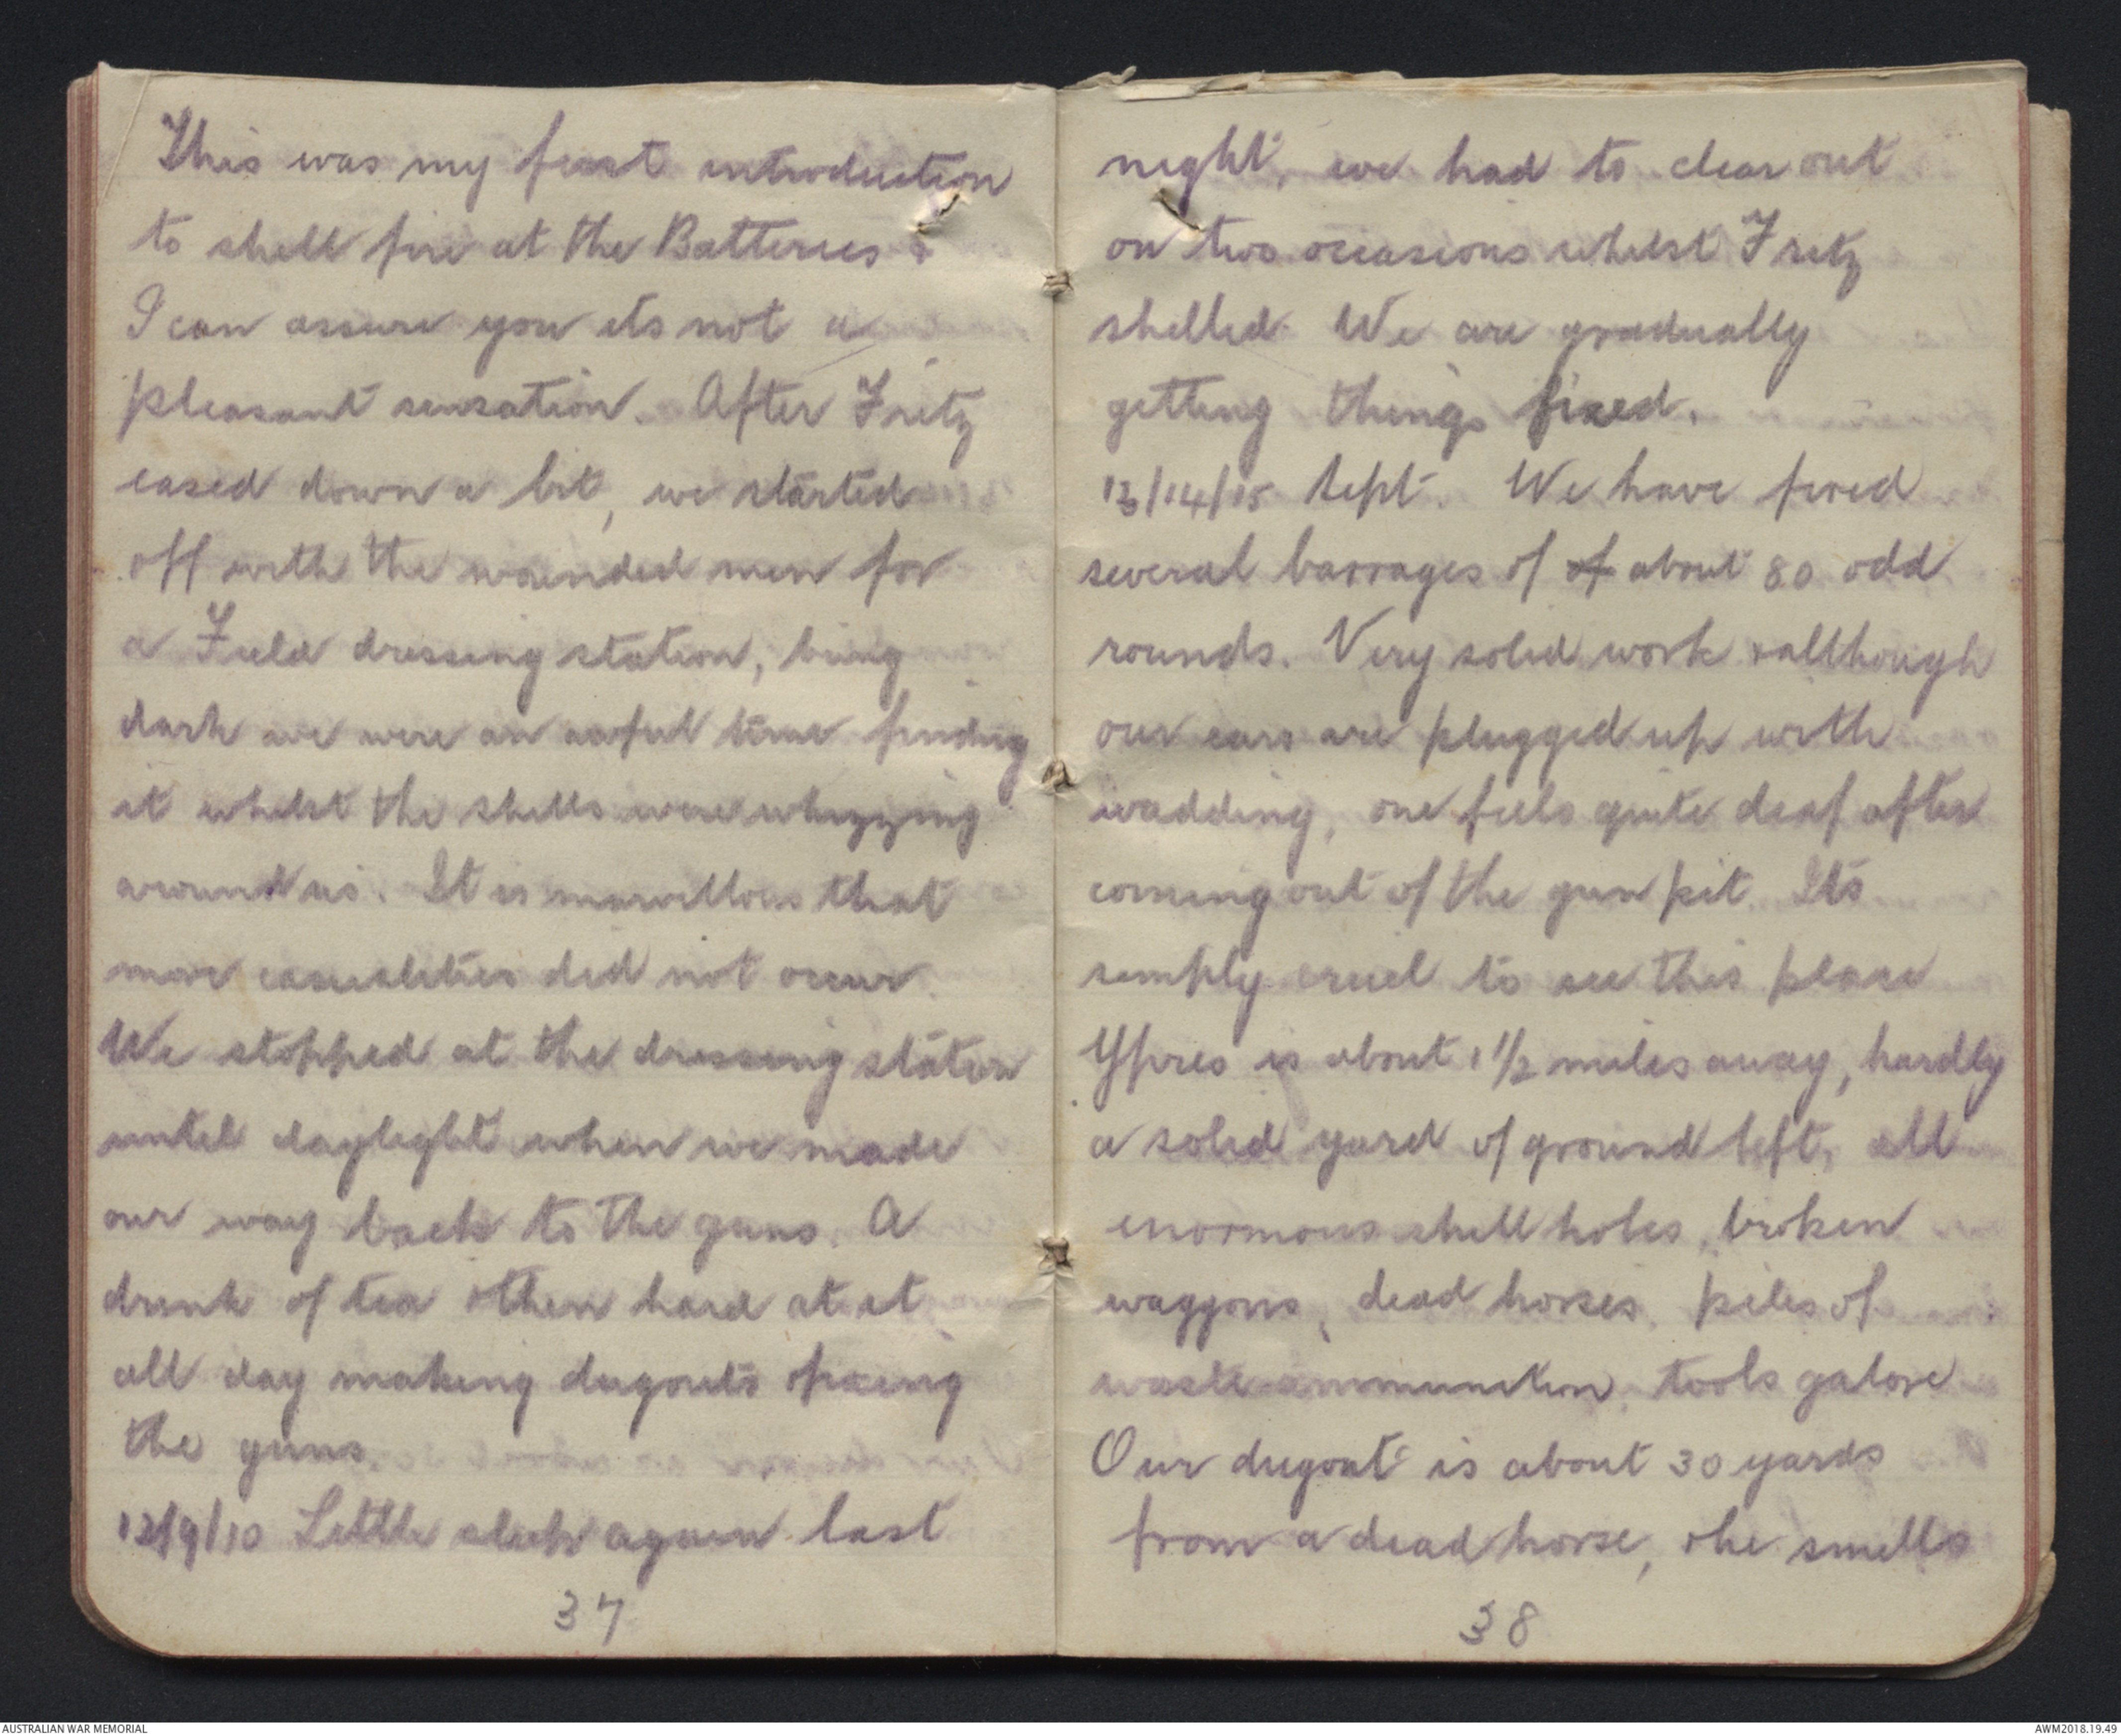 This was my first introduction
to shell fire at the Batteries &
I can assure you its not a
pleasant sensation. After Fritz
eased down a bit, we started
off with the wounded men for
a Field dressing station, being
dark we were an awful time finding
it whilst the shells were whizzing
around us. It is marvillous that
more casualities did not occur.
We stopped at the dressing station
until daylight when we made
our way back to the guns. A
drink of tea & then hard at it
all day making dugouts & fixing
the guns.
Little sleep again last
37
night, we had to clear out
on two occasions whilst Fritz
shelled. We are gradually
getting things fixed.
13/14/15 Sept. We have fired
several barrages of of about 80 odd
rounds. Very solid work & allthough
our ears are plugged up with
wadding, one feels quite deaf after
coming out of the gun pit. Its
simply cruel to see this place
Ypres is about 1 1/2 miles away, hardly
a solid yard of ground left, all
enormous shell holes, broken
waggons, dead horses, piles of
waste ammunition, tools galore
Our dugout is about 30 yards
from a dead horse, & he smells
38
AUSTRALIAN WAR MEMORIAL
AWM2018.19.49